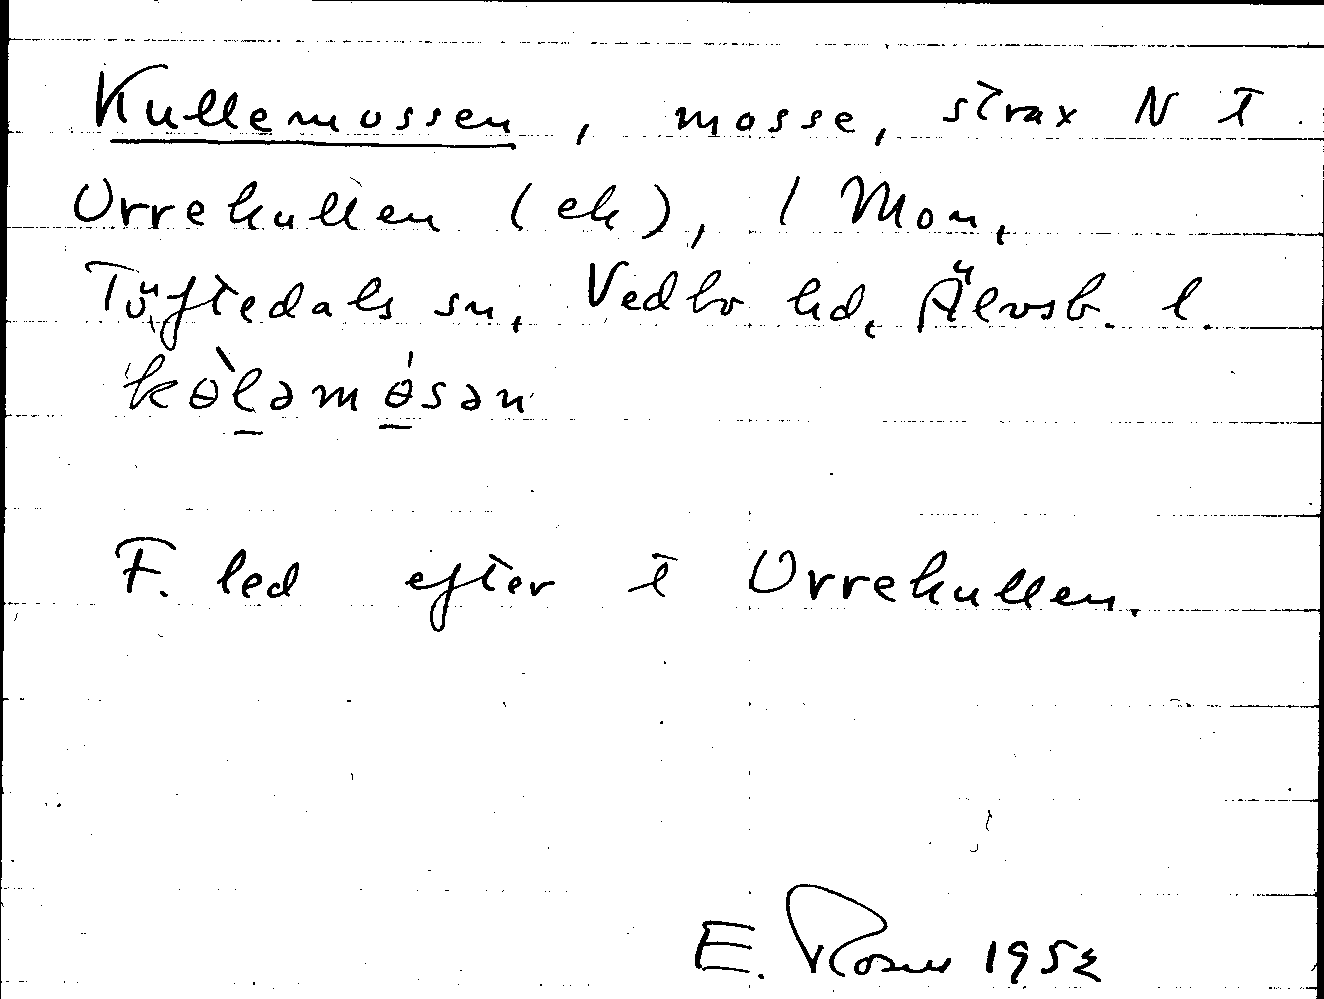 Kullemossen, mosse, strax N t
Urrekullen (ek), 1 Mon,
Töftedals sn, Vedbo hd, Älvsb. l.
kɵ̀ləmɵ́sən
F. led efter t Urrekullen.
E. 1952